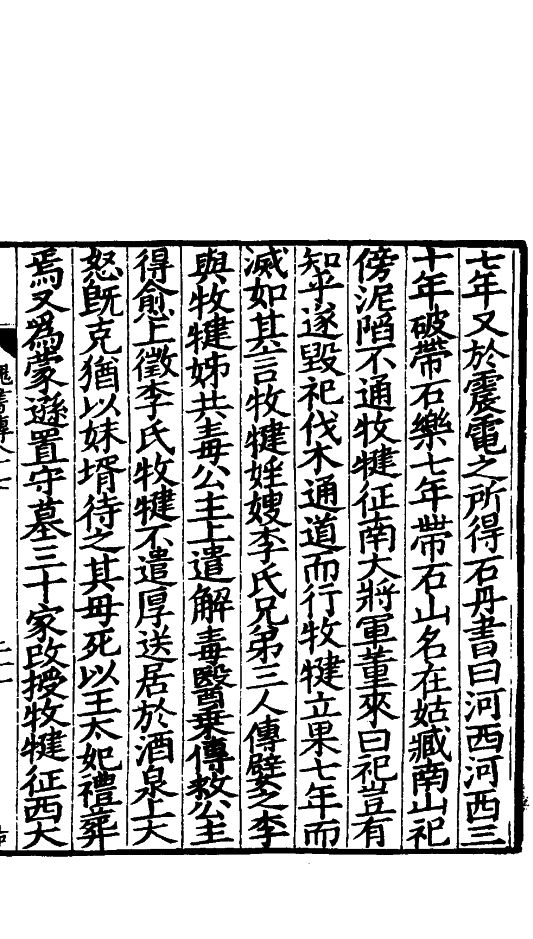 七年又於震電之所得石丹書曰河西河西三
十年破帶石樂七年帶石山名在姑臧南山祀
傍泥䧟不通牧犍征南大將軍董來曰祀豈有
知乎遂毀祀伐木通道而行牧犍立果七年而
滅如其言牧犍婬嫂李氏兄弟三人傳嬖之李
與牧犍姊共毒公主上遣解毒醫乗傳救公主
得愈上徵李氏牧犍不遣厚送居於酒泉上大
怒旣克猶以妹壻待之其母死以王太妃禮葬
焉又爲蒙遜置守墓三十家改授牧犍征西大